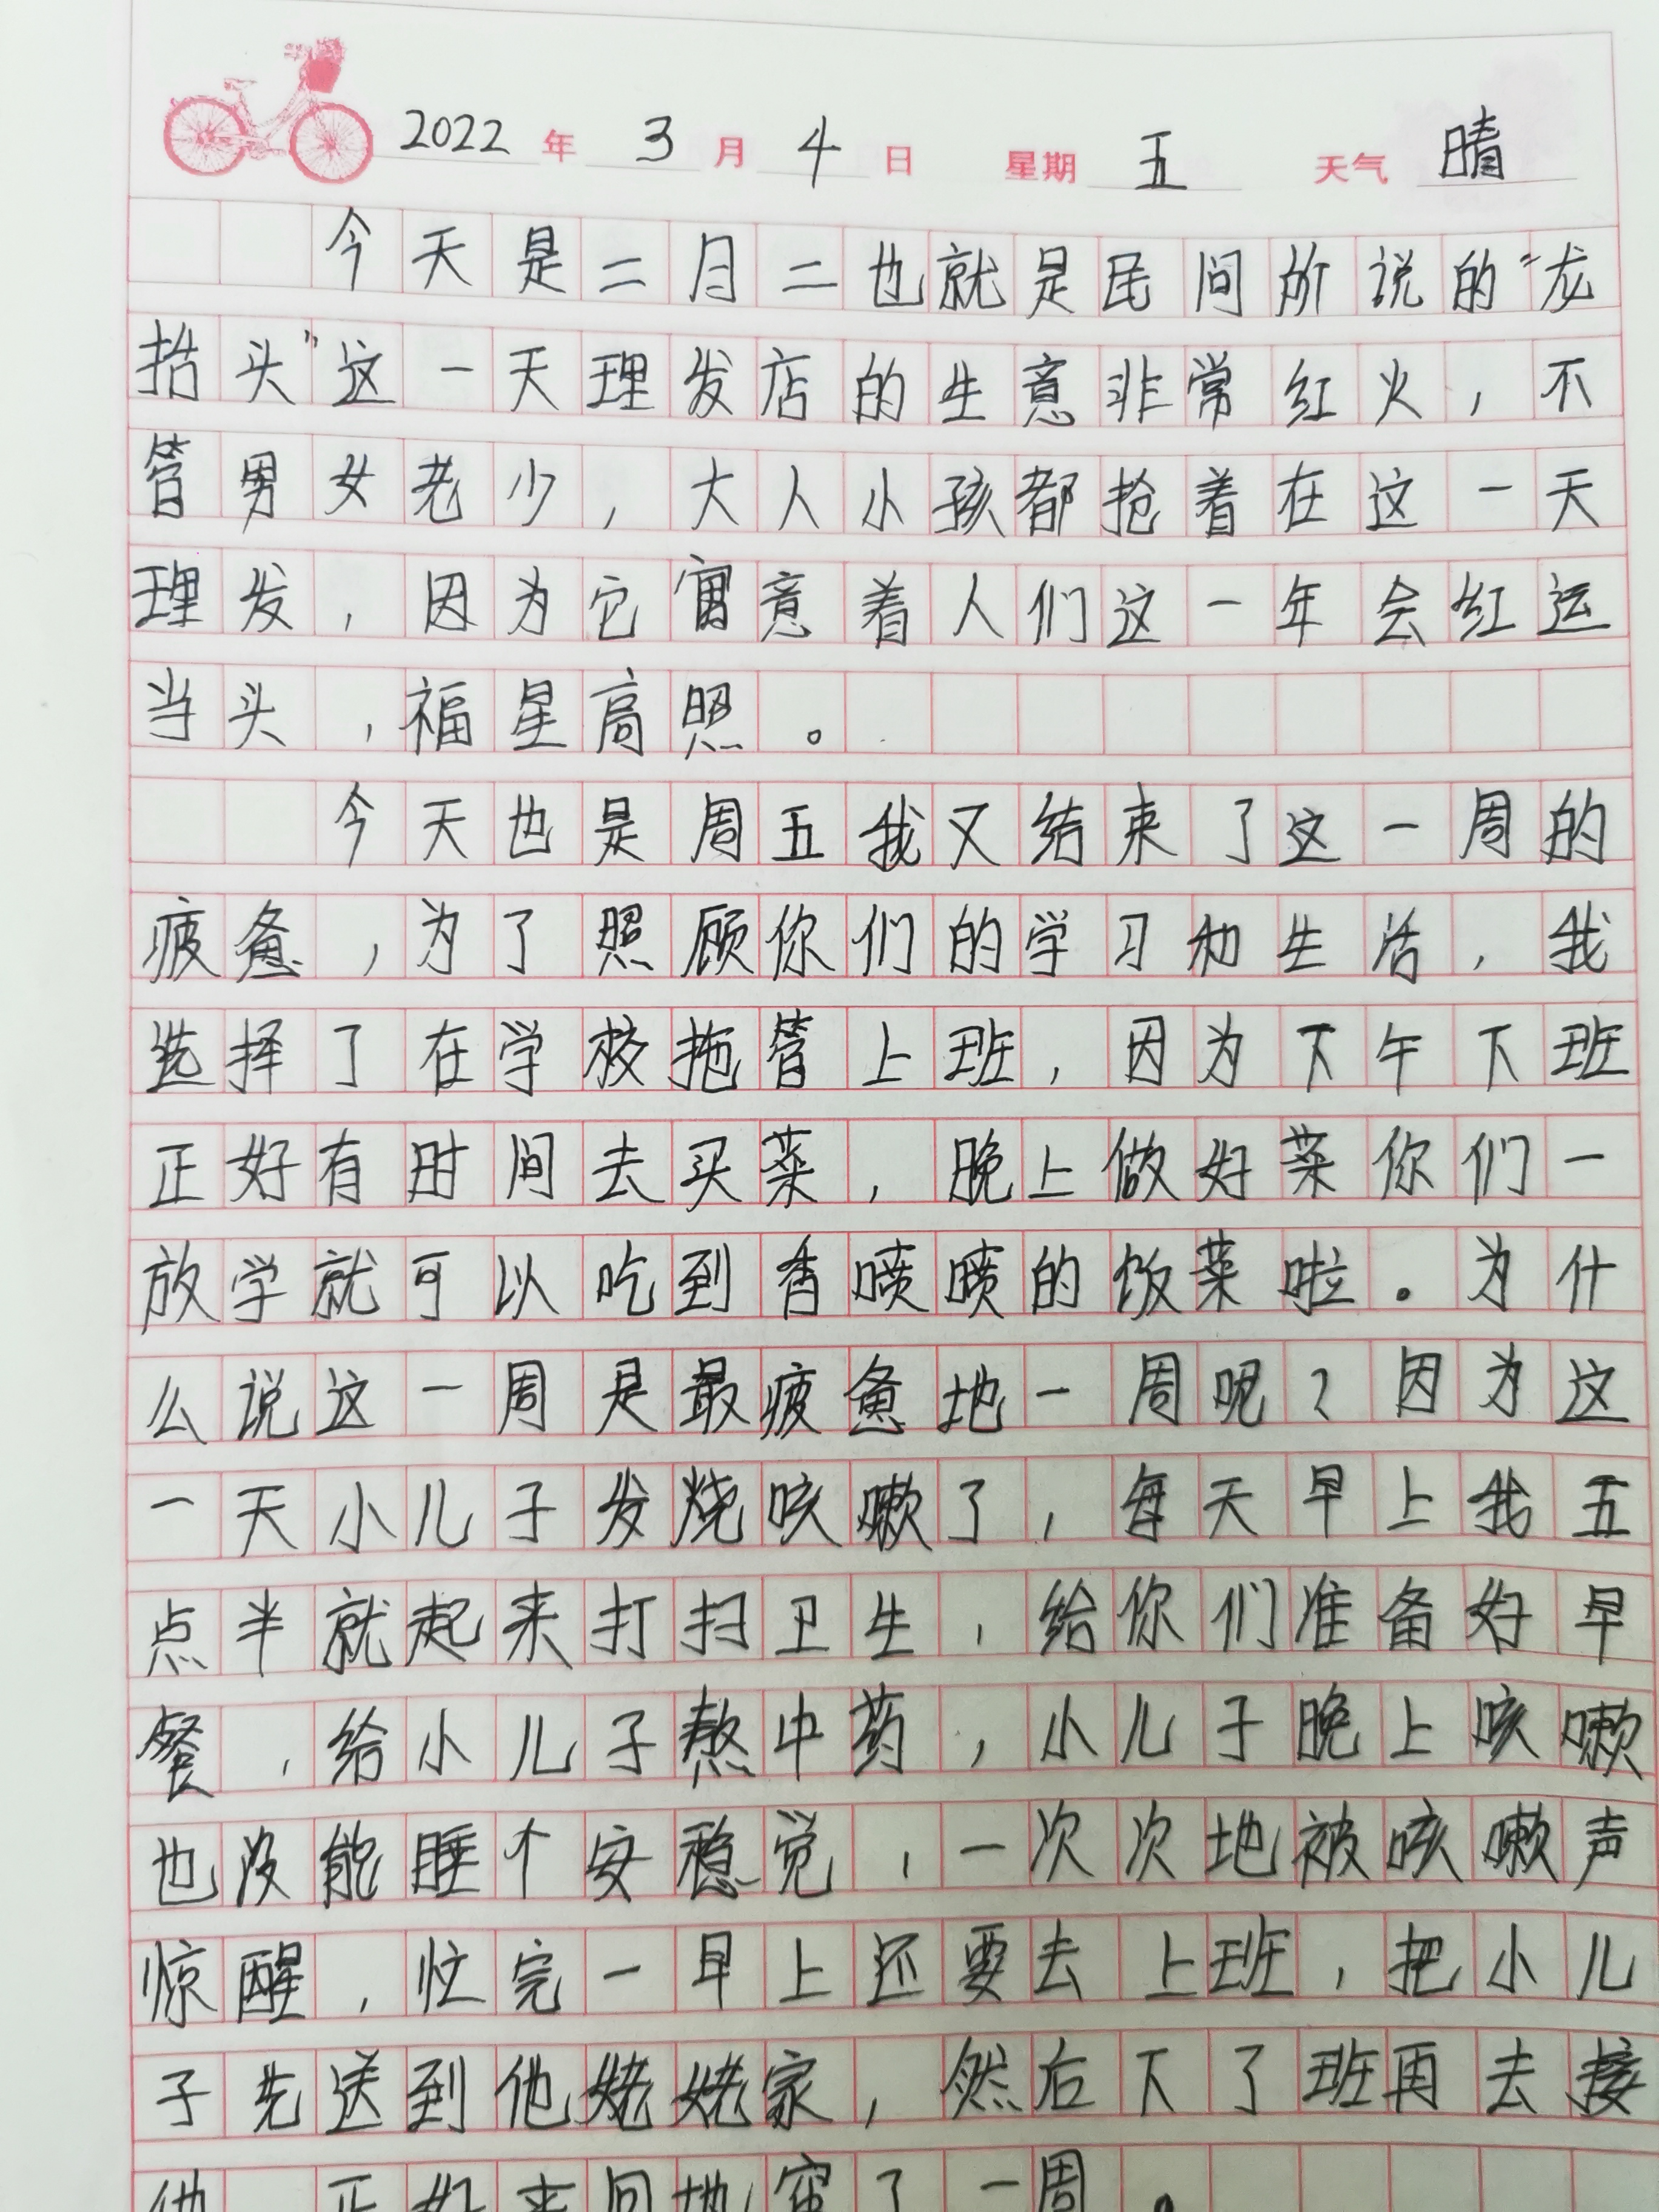 2022年3月4日 星期五 天气晴
今天是二月二也就是民间所说的“龙
抬头”这一天理发店的生意非常红火,不
管男女老少,大人小孩都抢着在这一天
理发,因为它寓意着人们这一年会红运
当头,福星高照。
今天也是周五我又结束了这一周的
疲惫,为了照顾你们的学习和生活,我
选择了在学校拖管上班,因为下午下班
正好有时间去买菜,晚上做好菜你们一
放学就可以吃到香喷喷的饭菜啦。为什
么说这一周是最疲惫地一周呢?因为这
一天小儿子发烧咳嗽了,每天早上我五
点半就起来打扫卫生,给你们准备好早
餐,给小儿子熬中药,小儿子晚上咳嗽
也没能睡个安稳觉,一次次地被咳嗽声
惊醒,忙完一早上还要去上班,把小儿
子先送到他姥姥家,然后下了班再去接
他 正好来回地窜了一周。